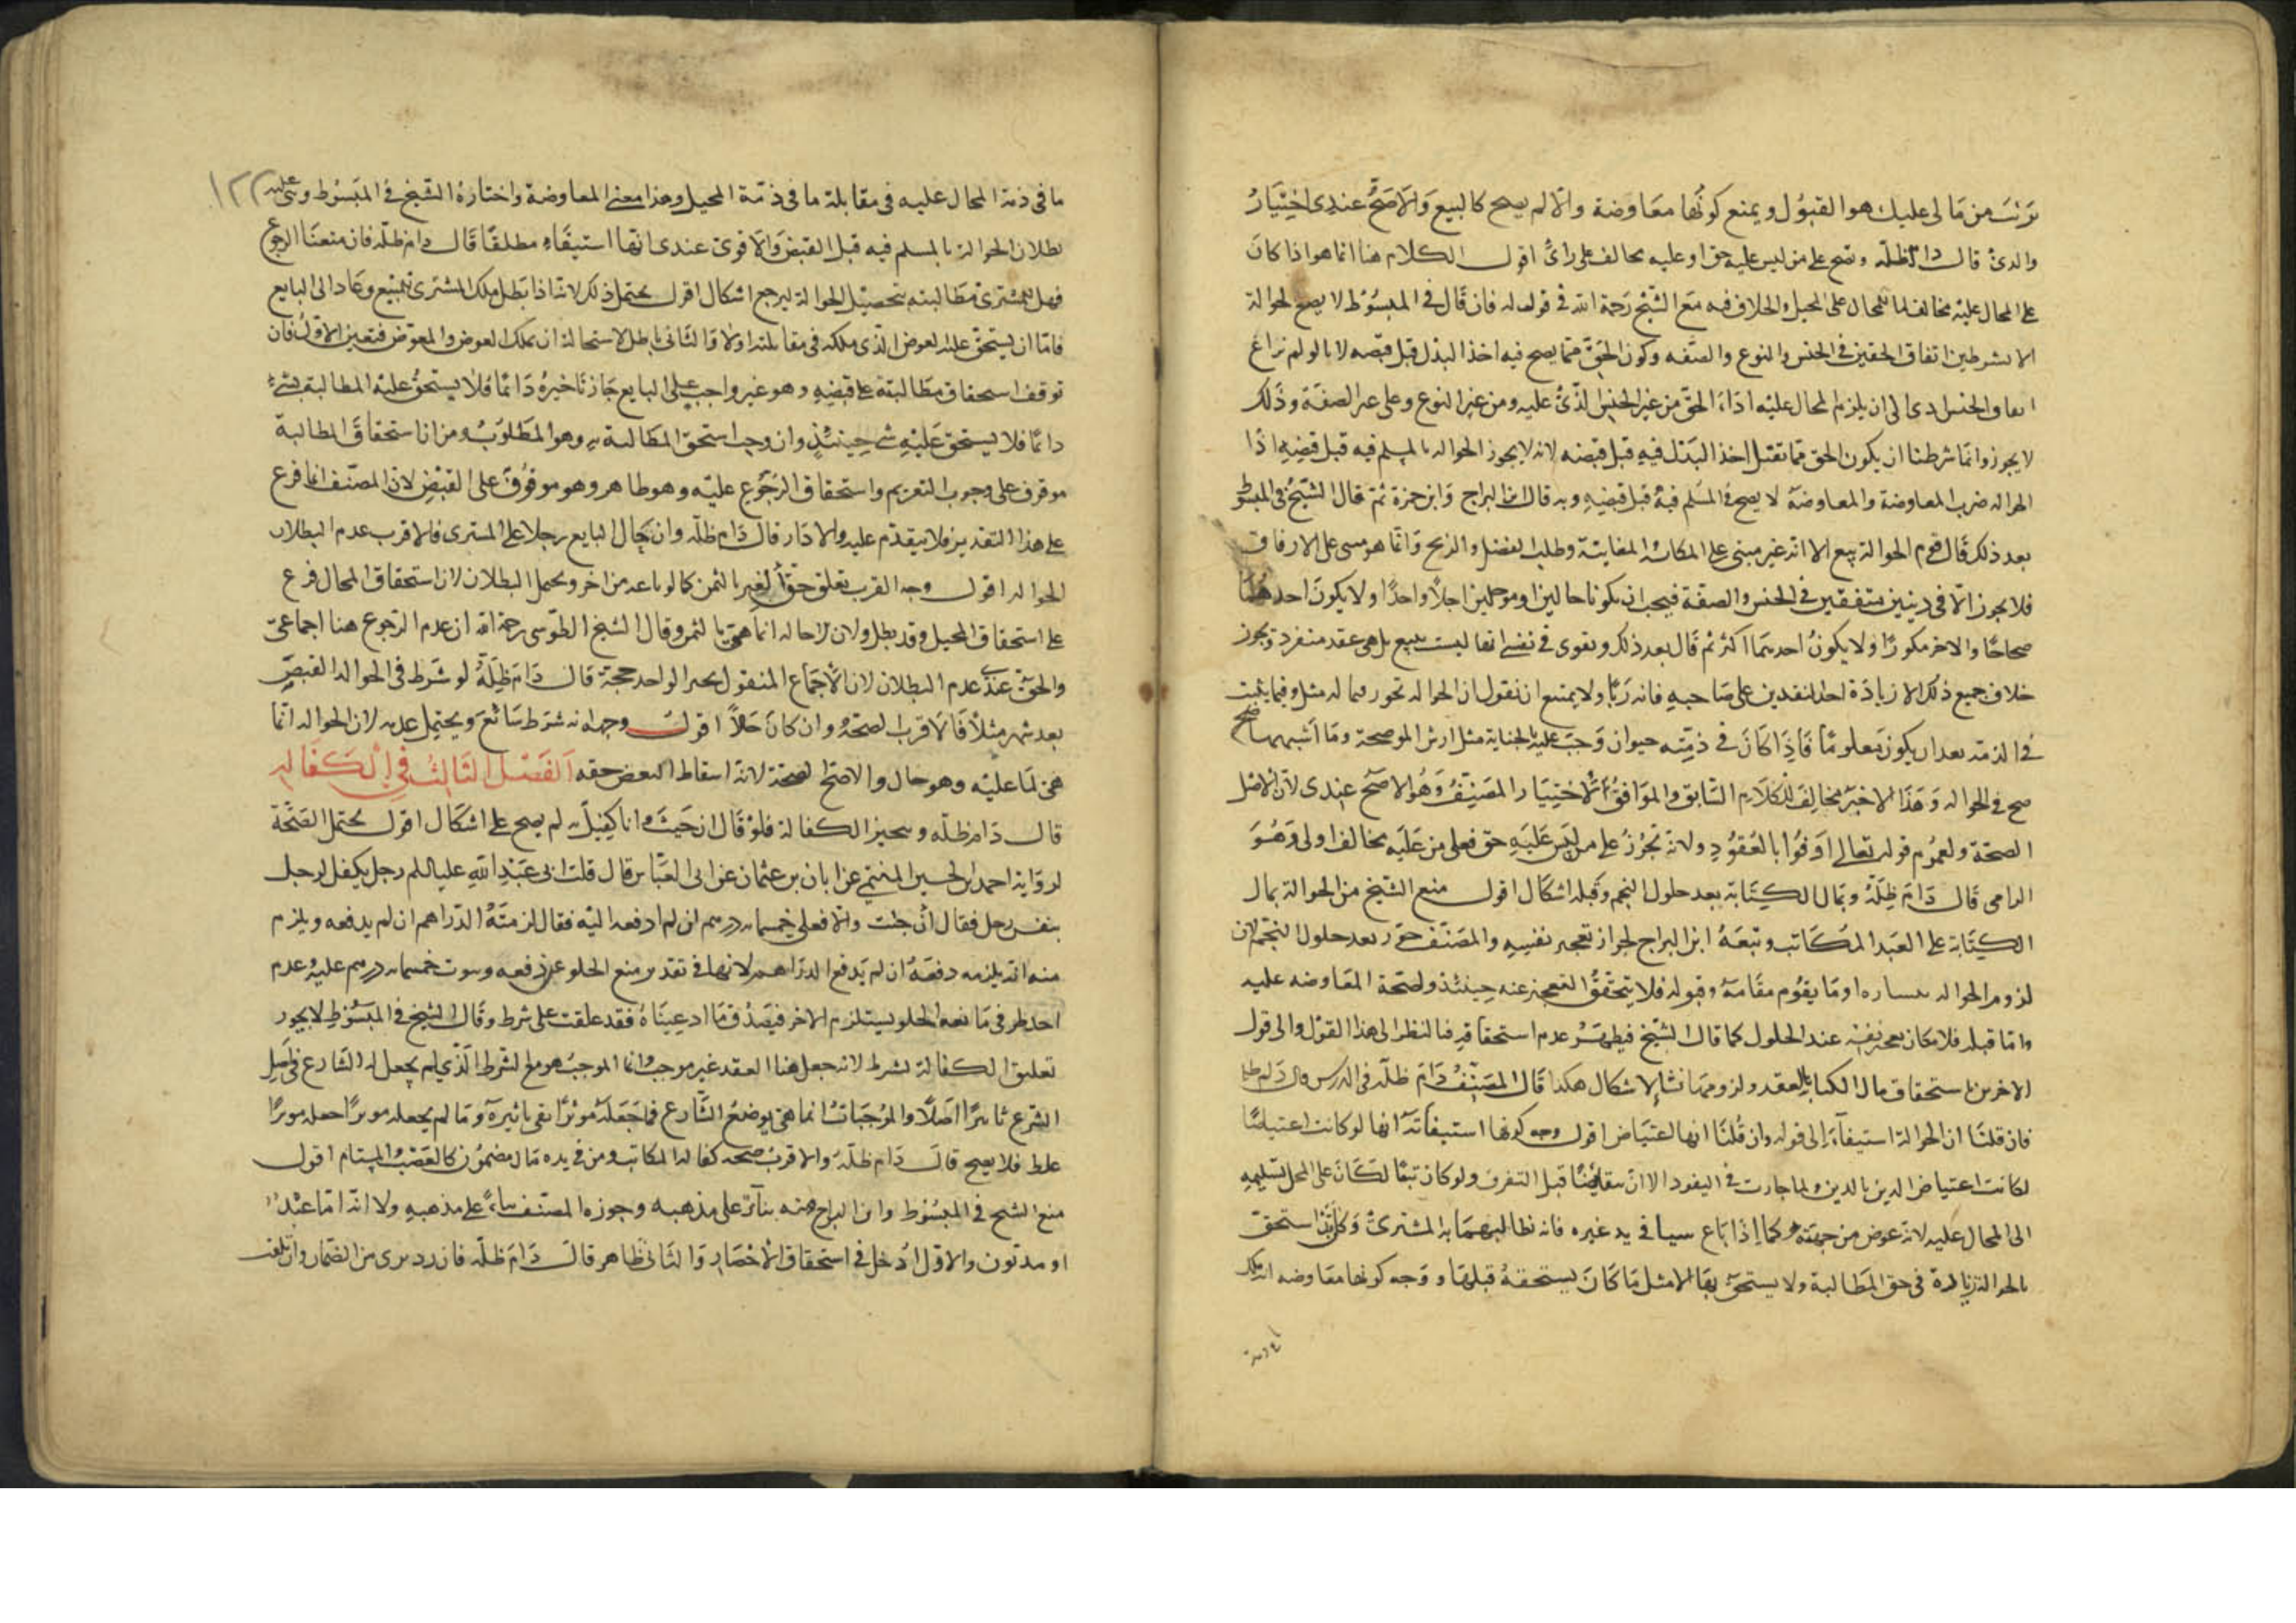 من مالى عليك هو القبول ويمنع كونها معاوضة والا لم يصح كالبيع والاصح عندى اختيار
والدى قال دام ظله وتصح على من ليس عليه حق او عليه مخالف على راى اقول الكلام هنا انما هو اذا كان
على المحال عليه مخالفا للمحال على المحيل والخلاف فيه مع الشيخ رحمة الله فى قوله فان قال فى المبسوط لا يصح الحوالة
الا بشرطين اتفاق الحقين فى الجنس والنوع والصفه وكون الحق مما يصح فيه اخذ البدل قبل قبضه لانا لو لم نراع
اتفاق الجنس ادى الى ان يلزم المحال عليه اداء الحق من غير الجنس الذى عليه ومن غير النوع وعلى غير الصفة وذلك
لا يجوز وانما شرطنا ان يكون الحق مما تقبل اخذ البدل فيه قبل قبضه لانه لا يجوز الحواله بالمسلم فيه قبل قبضه اذا
الحواله ضرب المعاوضة والمعاوضة لا يصح فى المسلم فيه قبل قبضه وبه قال ابن البراج وابن حمزة ثم قال الشيخ فى المبسوط
بعد ذلك قال قوم الحوالة بيع الا انه غير مبنى على المكاسة المغابنة وطلب الفضل والربح وانما هو مبنى على الارفاق
فلا يجوز الا فى دينين متفقين فى الجنس والصفة فيجب ان يكونا حالين او موجلين اجلا واحدا ولا يكون احدهما
صحاحا والاخر مكسورا ولا يكون احدهما اكثر ثم قال بعد ذلك ويقوى فى نفسى انها ليست ببيع بل هى عقد منفرد ويجوز
خلاف جميع ذلك الا زيادة احد النقدين على صاحبه فانه ربا ولا يمتنع ان نقول ان الحواله تجوز فيما له مثل وفيما يثبت
فى الذمة بعد ان يكون معلوما فاذا كان فى ذمته حيوان وجب عليه بالجناية مثل ارش الموضحة وما اشبهها صح
صح فى الحواله وهذا الاخير مخالف للكلام السابق والموافق لاختيار المصنف وهو الاصح عندى لان الاصل
الصحة ولعموم قوله تعالى اوفوا بالعقود ولانه تجوز على من ليس عليه حق فعلى من عليه مخالف اولى وهو
الرامى قال دام ظله وبمال الكتابة بعد حلول النجم وقبله اشكال اقول منع الشيخ من الحوالة بمال
الكتابة على العبد المكاتب وتبعه ابن البراج لجواز تعجيز نفسه والمصنف جوز بعد حلول النجم لان
لزوم الحواله او ما يقوم مقامه وقبوله فلا يتحقق التعجيز عنه حينئذ ولصحة المعاوضه عليه
واما قبله فلامكان تعجيز نفسه عند الحلول كما قال الشيخ فيظهر عدم استحقاقه فبالنظر الى هذا القول والى قول
الاخرين باستحقاق مال الكتابة بالعقد ولزومها نشا الاشكال هكذا قال المصنف دام ظله فى الدرس قال دام ظله
فان قلنا ان الحوالة استيفاء الى قوله وان قلنا انها اعتياض اقول وجه كونها استيفاء انها لو كانت اعتياضا
لكانت اعتياض الدين بالدين ولما جازت فى النقود الا ان يتقابضا قبل التفرق ولو كان تبعا لكان على المحيل تسليمه
الى المحال عليه لانه عوض من جهته كما اذا باع شيا فى يد غيره فانه يطالبهما به المشترى وكان استحق
بالحوالة زيادة فى حق المطالبة ولا يستحق بها الا مثل ما كان يستحقه قبلها ووجه كونها معاوضه انه يملك
ما فى ذمة المحال عليه فى مقابلة ما فى ذمة المحيل وهذا معنى المعاوضة واختاره الشيخ فى المبسوط وبنى عليه
بطلان الحوالة بالمسلم فيه قبل القبض والاقوى عندى انها استيفاء مطلقا قال دام ظله فان منعنا الرجوع
فهل للمشترى مطالبته بتحصيل الحوالة ليرجع اشكال اقول يحتمل ذلك لانه اذا بطل ملك المشترى للمبيع وعاد الى البايع
فاما ان يستحق عليه العوض الذى ملكه فى مقابلته اولا والثانى باطل لاستحالة ان يملك العوض والمعوض فتعين الاول فان
توقف استحقاق مطالبته على قبضه وهو غير واجب على البايع جاز تاخيره دائما فلا يستحق عليه المطالبة بشئ
دائما فلا يستحق عليه شى حينئذ وان وجب استحق المطالبة به وهو المطلوب ومن ان استحقاق المطالبة
موقوف على وجوب التغريم واستحقاق الرجوع عليه وهو ظاهر وهو موقوف على القبض لان المصنف انما فرع
على هذا التقدير فلا يتقدم عليه والا دار قال دام ظله وان احال البايع رجلا على المشترى فالاقرب عدم البطلان
الحواله اقول وجه القرب تعلق حق الغير بالثمن كما لو باعه من اخر ويحتمل البطلان لان استحقاق المحال فرع
على استحقاق المحيل وقد بطل ولان الاحاله انما هى بالثمن وقال الشيخ الطوسى رحمة الله ان عدم الرجوع هنا اجماعى
والحق عندى عدم البطلان لان الاجماع المنقول بخبر الواحد حجة قال دام ظله لو شرط فى الحواله القبض
بعد شهر مثلا فالاقرب الصحة وان كان حالا اقول وجه انه شرط سائغ ويحتمل عدمه لان الحواله انما
هى لما عليه وهو حال والاصح الصحة لانه اسقاط لبعض حقه الفصل الثالث فى الكفاله
قال دام ظله وتنجيز الكفالة فلو قال ان جيت فانا كفيل به لم يصح على اشكال اقول يحتمل الصحة
لرواية احمد بن الحسين الميثمى عن ابان بن عثمان عن ابى العباس قال قلت لابى عبد الله عليه السلم رجل يكفل لرجل
بنفس رجل فقال ان جئت والا فعلى خمسمائة درهم ان لم ادفعه اليه فقال لزمته الدراهم ان لم يدفعه ويلزم
منه انه يلزمه دفعه ان لم يدفع الدراهم لانها فى تقدير منع الخلو عن دفعه وثبوت خمسمائة درهم عليه وعدم
احد طرفى مانعه الخلو يستلزم الاخر فيصدق ما ادعيناه فقد علقت على شرط وقال الشيخ فى المبسوط لا يجوز
تعليق الكفالة بشرط لانه جعل هنا العقد غير موجب وانما الموجب هو الشرط الذى لم يجعل له الشارع فى اصل
الشرع تاثيرا اصلا والموجبات انما هى بوضع الشارع فما جعله موثرا بقى تاثيره وما لم يجعله موثرا جعله موثرا
غلط فلا يصح قال دام ظله والاقرب صحة كفالة المكاتب ومن فى يده مال مضمون كالغصب والمستام اقول
منع الشيخ فى المبسوط وابن البراج منه بناء على مذهبه وجوزه المصنف بناء على مذهبه ولا انه اما عبد
او مديون والاول ادخل فى استحقاق الاحضار والثانى ظاهر قال دام ظله فان رد برى من الضمان وان تلفت